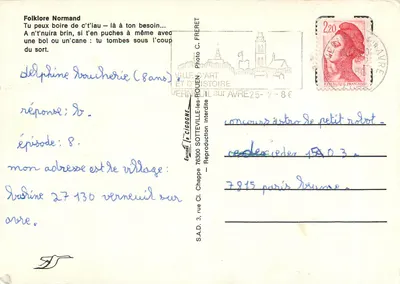 Folklore Normand
Tu peux boire de c't'iau - là à ton besoin...
A n't'nuira brin, si t'en puches à même avec
une bol ou un'cane : tu tombes sous l'coup
du sort.
delphine boucherie (8 ans).
réponse: b.
épisode: 8.
mon adresse est le village:
27 130 verneuil sur
avre.
"le goubey"
76300 SOTTEVILLE-lès-ROUEN - Photo C. FRERET
- Reproduction interdite -
S.A.D. 3, rue Cl. Chappe
ART
ET HISTOIRE
VERNEUIL sur AVRE 25-9-86
2,20
AVRE
concours intro le petit robot.
1903.
7815 paris brune.